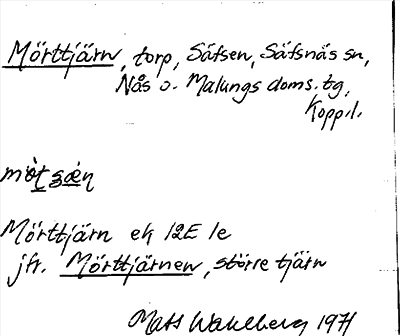 Mörttjärn, torp, Säfsen, Säfsnäs sn,
Nås o. Malungs doms. tg,
Kopp.l.
Mörttjärn ek 12E 1e
jfr. Mörttjärnen, större tjärn
Mats Wahlberg 1971